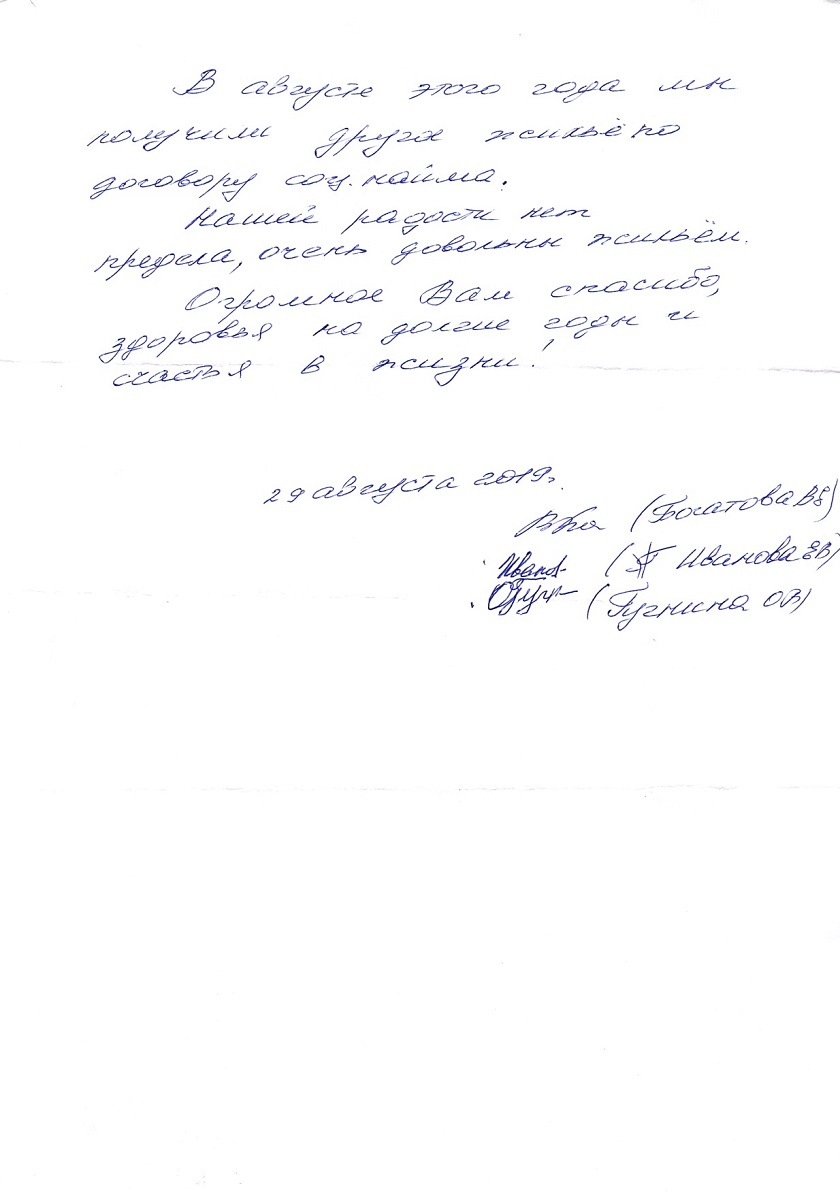 В августе этого года мы
получили другое жильё по
договору соц. найма.
Нашей радости нет
предела, очень довольны жильём.
Огромное Вам спасибо,
здоровья на долгие годы и
счастья в жизни!
29 августа 2019г.
(Богатова ВЕ)
(Иванова ЕВ)
(Гугнина ОВ)